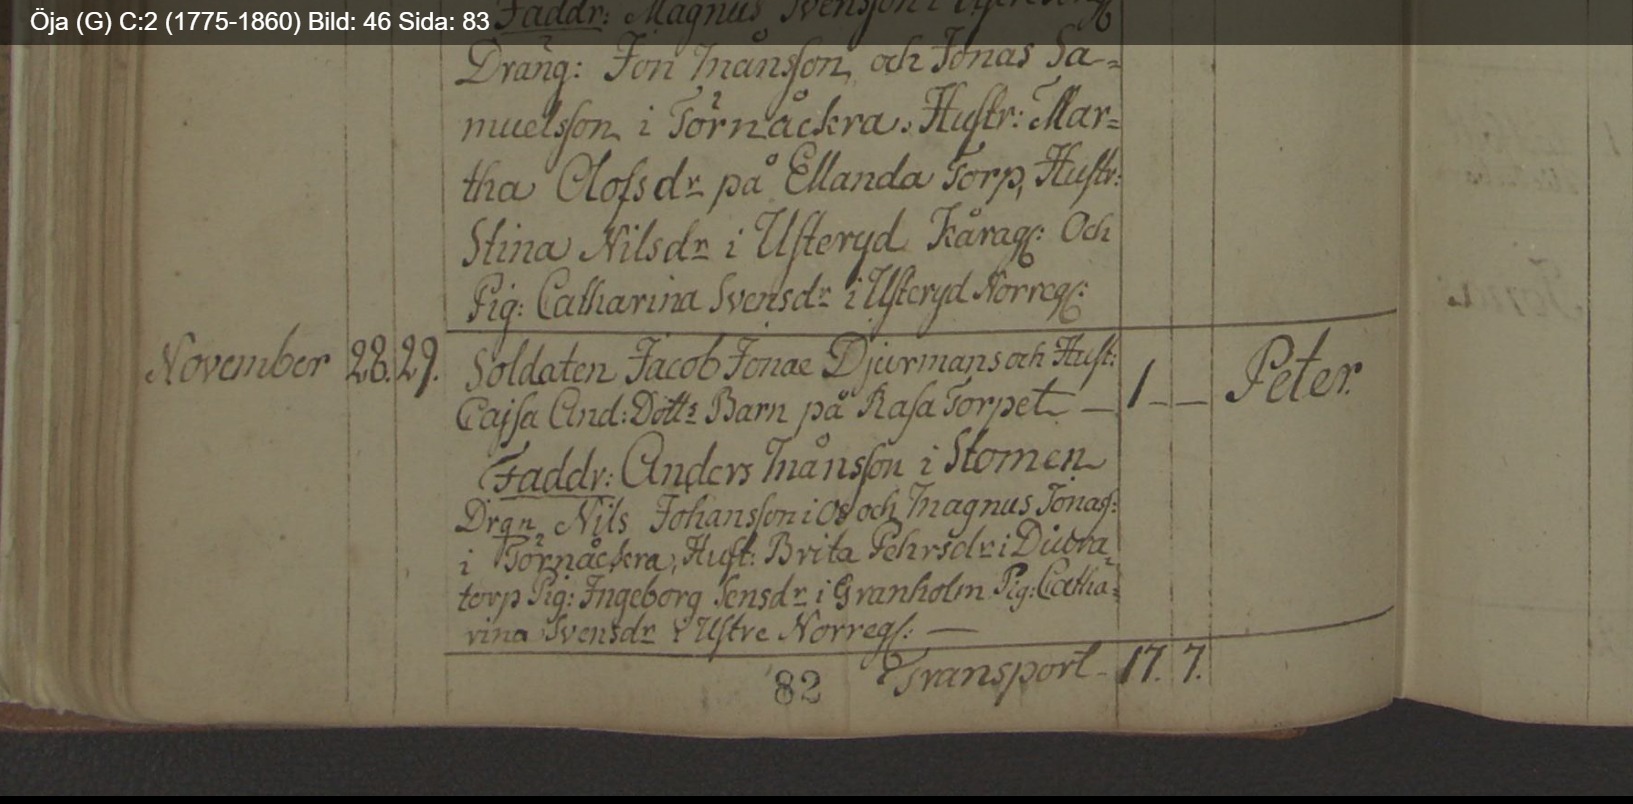 Öja (G) C:2 (1775-1860) Bild: 46 Sida: 83
Faddr: Magnus Svensson i
Dräng: Jon Månsson, och Jonas Sa-
muelsson i Törnåckra. Hustr: Mar=
tha Olofsdr på Ellanda Torp, Hustr:
Stina Nilsdr i Usteryd Kårag: Och
Pig: Catharina Svensdr i Usteryd Norreg:
November 28. 29. Soldaten Jacob Jonae Djurmans och Hust: 1 _ _ Peter.
Cajsa And: Dottr Barn på Rasa Torpet —
Faddr: Anders Månsson i Stomen
Drgn Nils Johansson i Os och Magnus Jonas:
i Törnåckra, Hust: Brita Pehrsdr i Diura-
torp Pig: Ingeborg Sensdr i Granholm Pig: Catha=
rina Svensdr i Ustre Norreg: —
82 Transport - 17. 7.